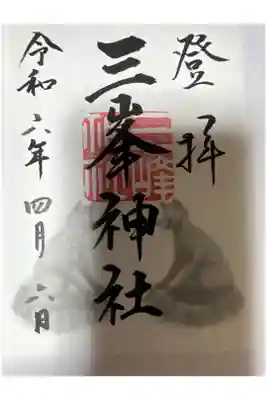 登拝
三峯神社
令和六年四月六日